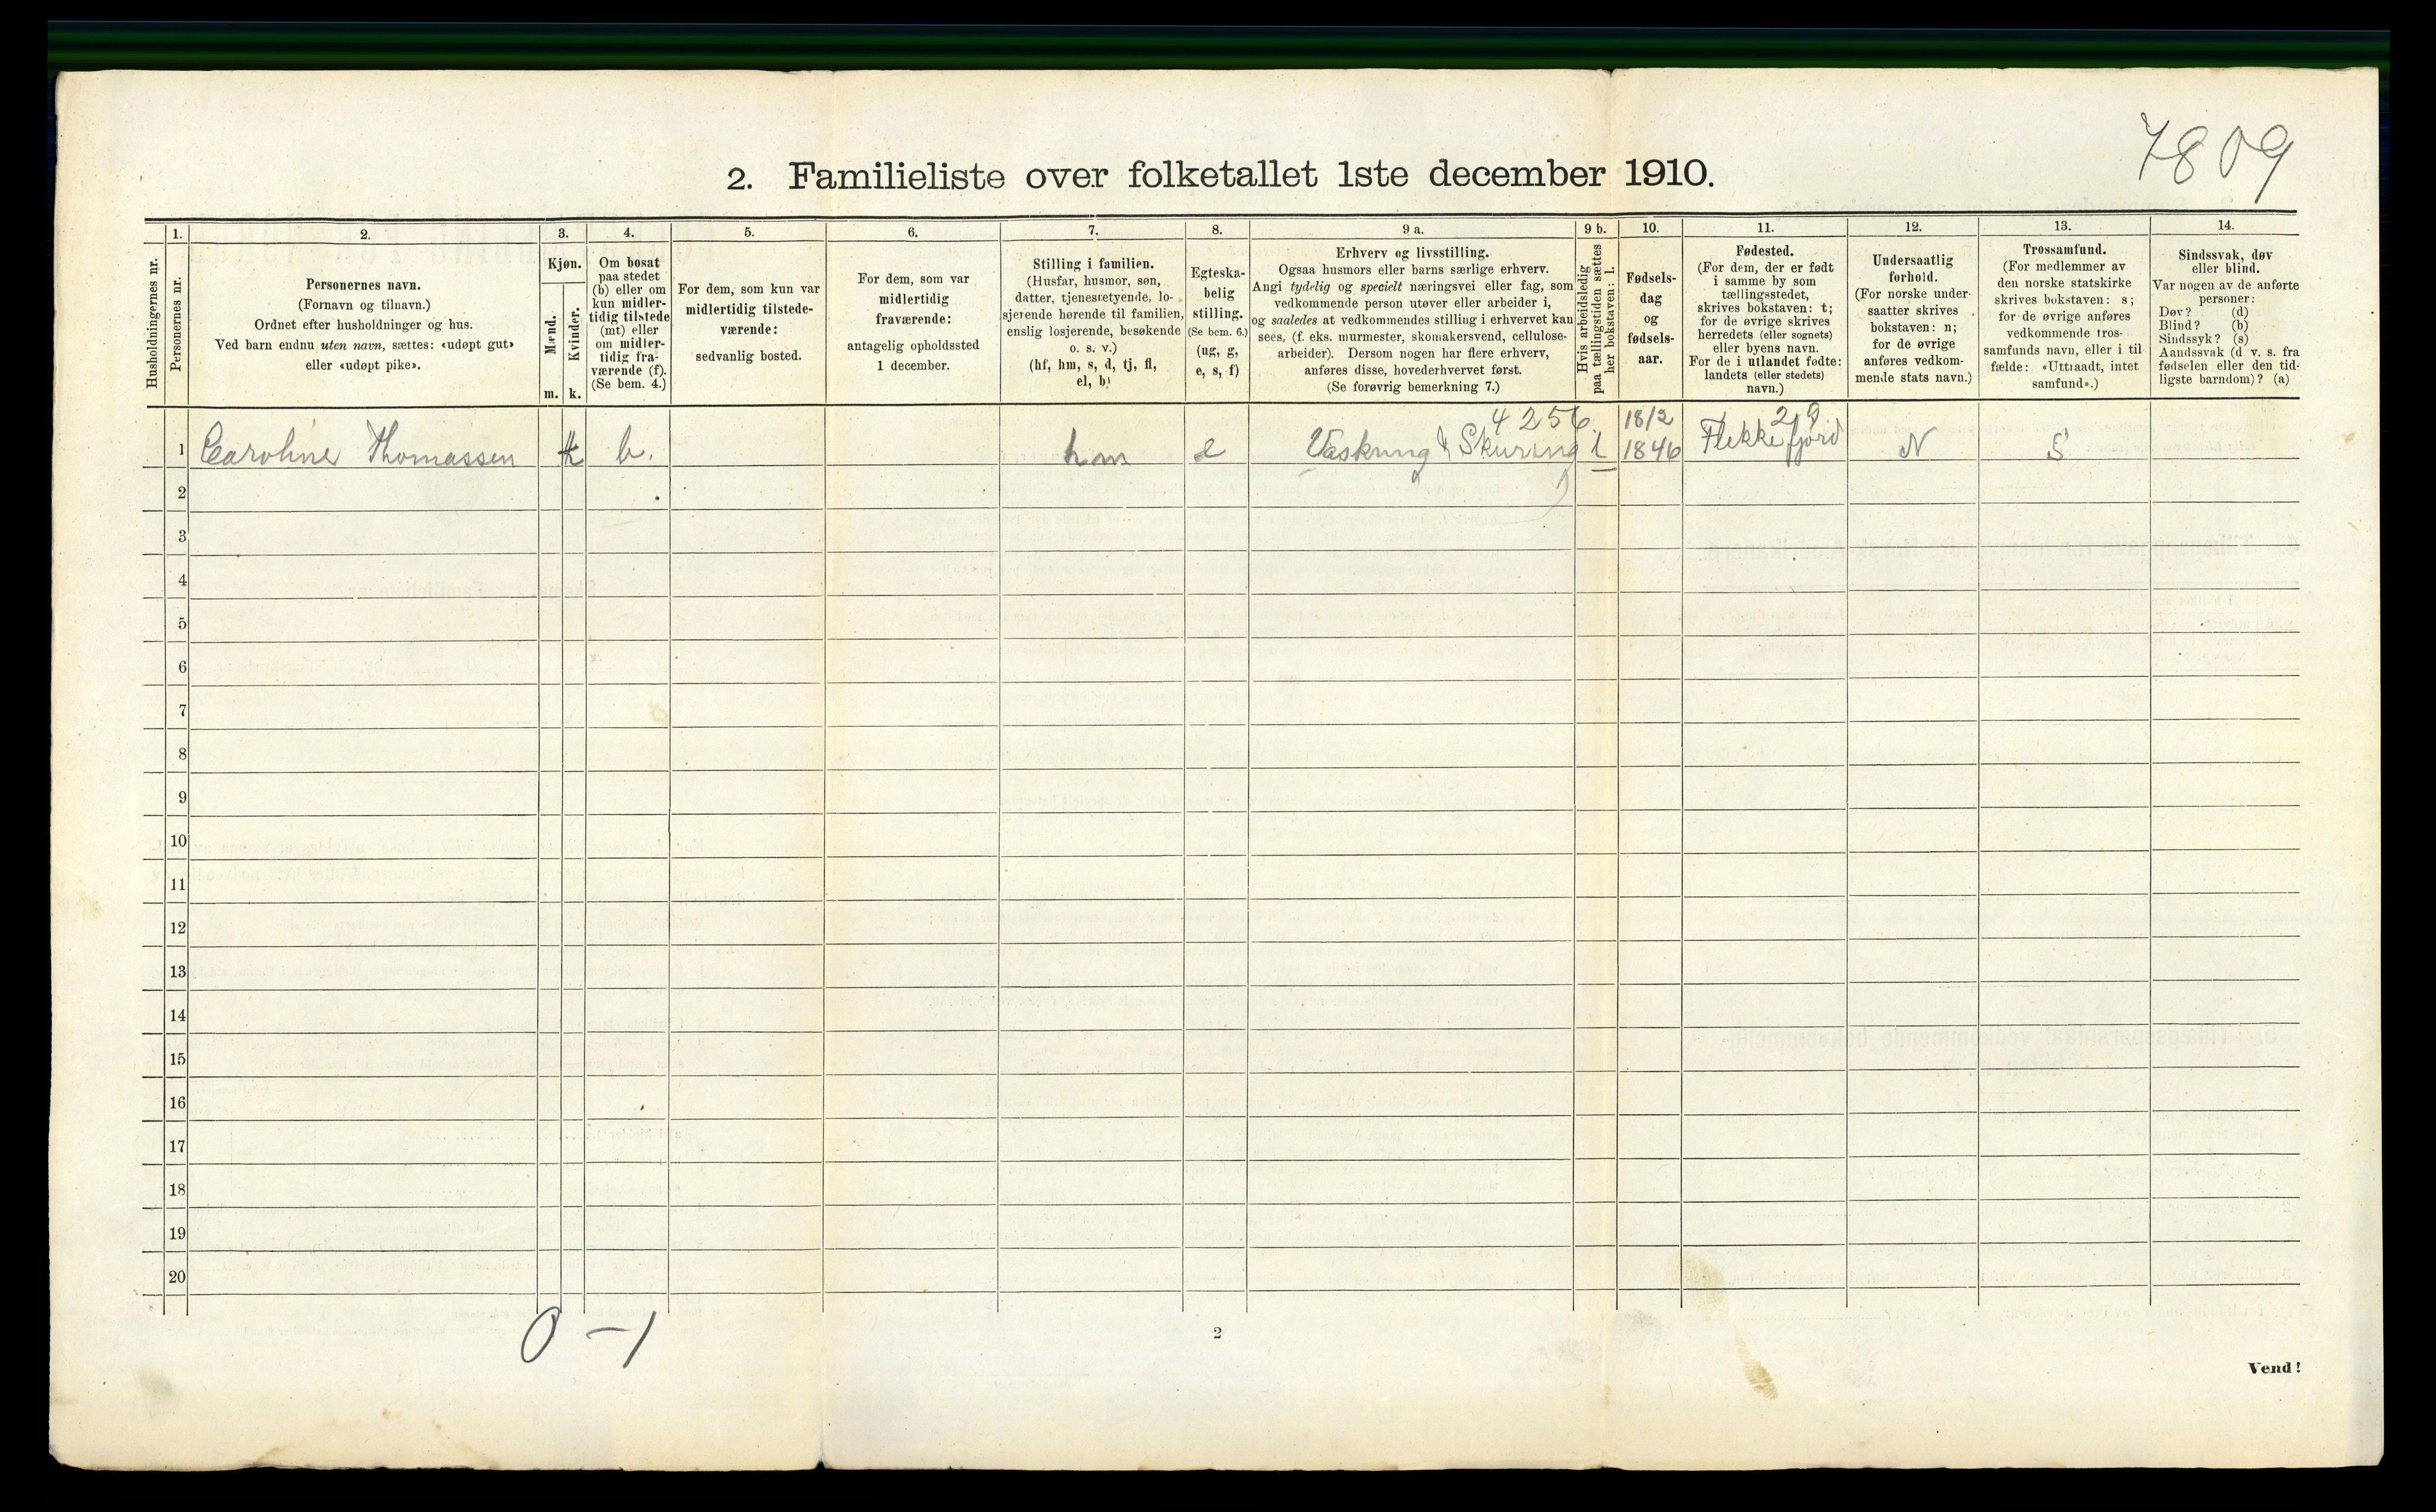 7809
2. Familieliste over folketallet 1ste december 1910.
Husholdningernes nr.
1.
Personernes nr.
2.
Personernes navn.
(Fornavn og tilnavn.)
Ordnet efter husholdninger og hus.
Ved barn endnu uten navn, sættes: «udøpt gut»
eller «udøpt pike».
3.
Kjøn.
Mænd.
Kvinder.
m. k.
4.
Om bosat
paa stedet
(b) eller om
kun midler-
tidig tilstede
(mt) eller
om midler-
tidig fra-
værende (f).
(Se bem. 4.)
5.
For dem, som kun var
midlertidig tilstede-
værende:
sedvanlig bosted.
6.
For dem, som var
midlertidig
fraværende:
antagelig opholdssted
1 december.
7.
Stilling i familien.
(Husfar, husmor, søn,
datter, tjenestetyende, lo-
sjerende hørende til familien,
enslig losjerende, besøkende
o. s. v.)
(hf, hm, s, d, tj, fl,
el, b)
8.
Egteska-
belig
stilling.
(Se bem. 6.)
(ug, g,
e, s, f)
9 a.
Erhverv og livsstilling.
Ogsaa husmors eller barns særlige erhverv.
Angi tydelig og specielt næringsvei eller fag, som
vedkommende person utøver eller arbeider i,
og saaledes at vedkommendes stilling i erhvervet kan
sees, (f. eks. murmester, skomakersvend, cellulose-
arbeider). Dersom nogen har flere erhverv,
anføres disse, hovederhvervet først.
(Se forøvrig bemerkning 7.)
9 b.
Hvis arbeidsledig
paa tællingstiden sættes
her bokstaven: l.
10.
Fødsels-
dag
og
fødsels-
aar.
11.
Fødested.
(For dem, der er født
i samme by som
tællingsstedet,
skrives bokstaven: t;
for de øvrige skrives
herredets (eller sognets)
eller byens navn.
For de i utlandet fødte:
landets (eller stedets)
navn.)
12.
Undersaatlig
forhold.
(For norske under-
saatter skrives
bokstaven: n;
for de øvrige
anføres vedkom-
mende stats navn.)
13.
Trossamfund.
(For medlemmer av
den norske statskirke
skrives bokstaven: s;
for de øvrige anføres
vedkommende tros-
samfunds navn, eller i til-
fælde: «Uttraadt, intet
samfund».)
14.
Sindssvak, døv
eller blind.
Var nogen av de anførte
personer:
Døv? (d)
Blind? (b)
Sindssyk? (s)
Aandssvak (d. v. s. fra
fødselen eller den tid-
ligste barndom)? (a)
4256. 18/2 29
1 Caroline Thomassen k b. hm e Vaskning & Skuring l 1846 Flekkefjord N S
2
3
4
5
6
7
8
9
10
11
12
13
14
15
16
17
18
19
20
0 – 1
2
Vend!